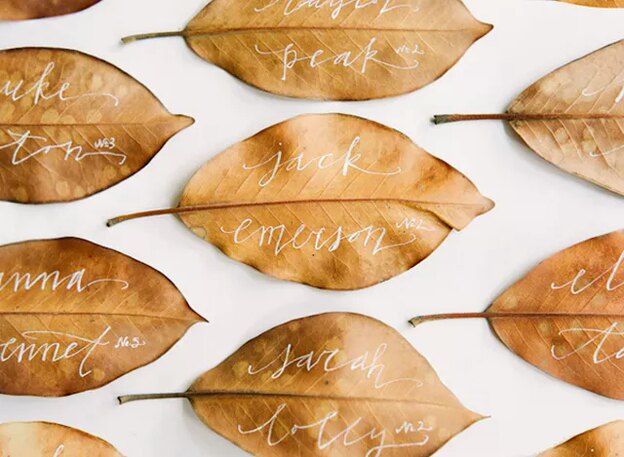 peak No.2
uke
ton No.3
jack
emerson No.2
anna
ennet No.5
el
ta
sarah
lolly No.2